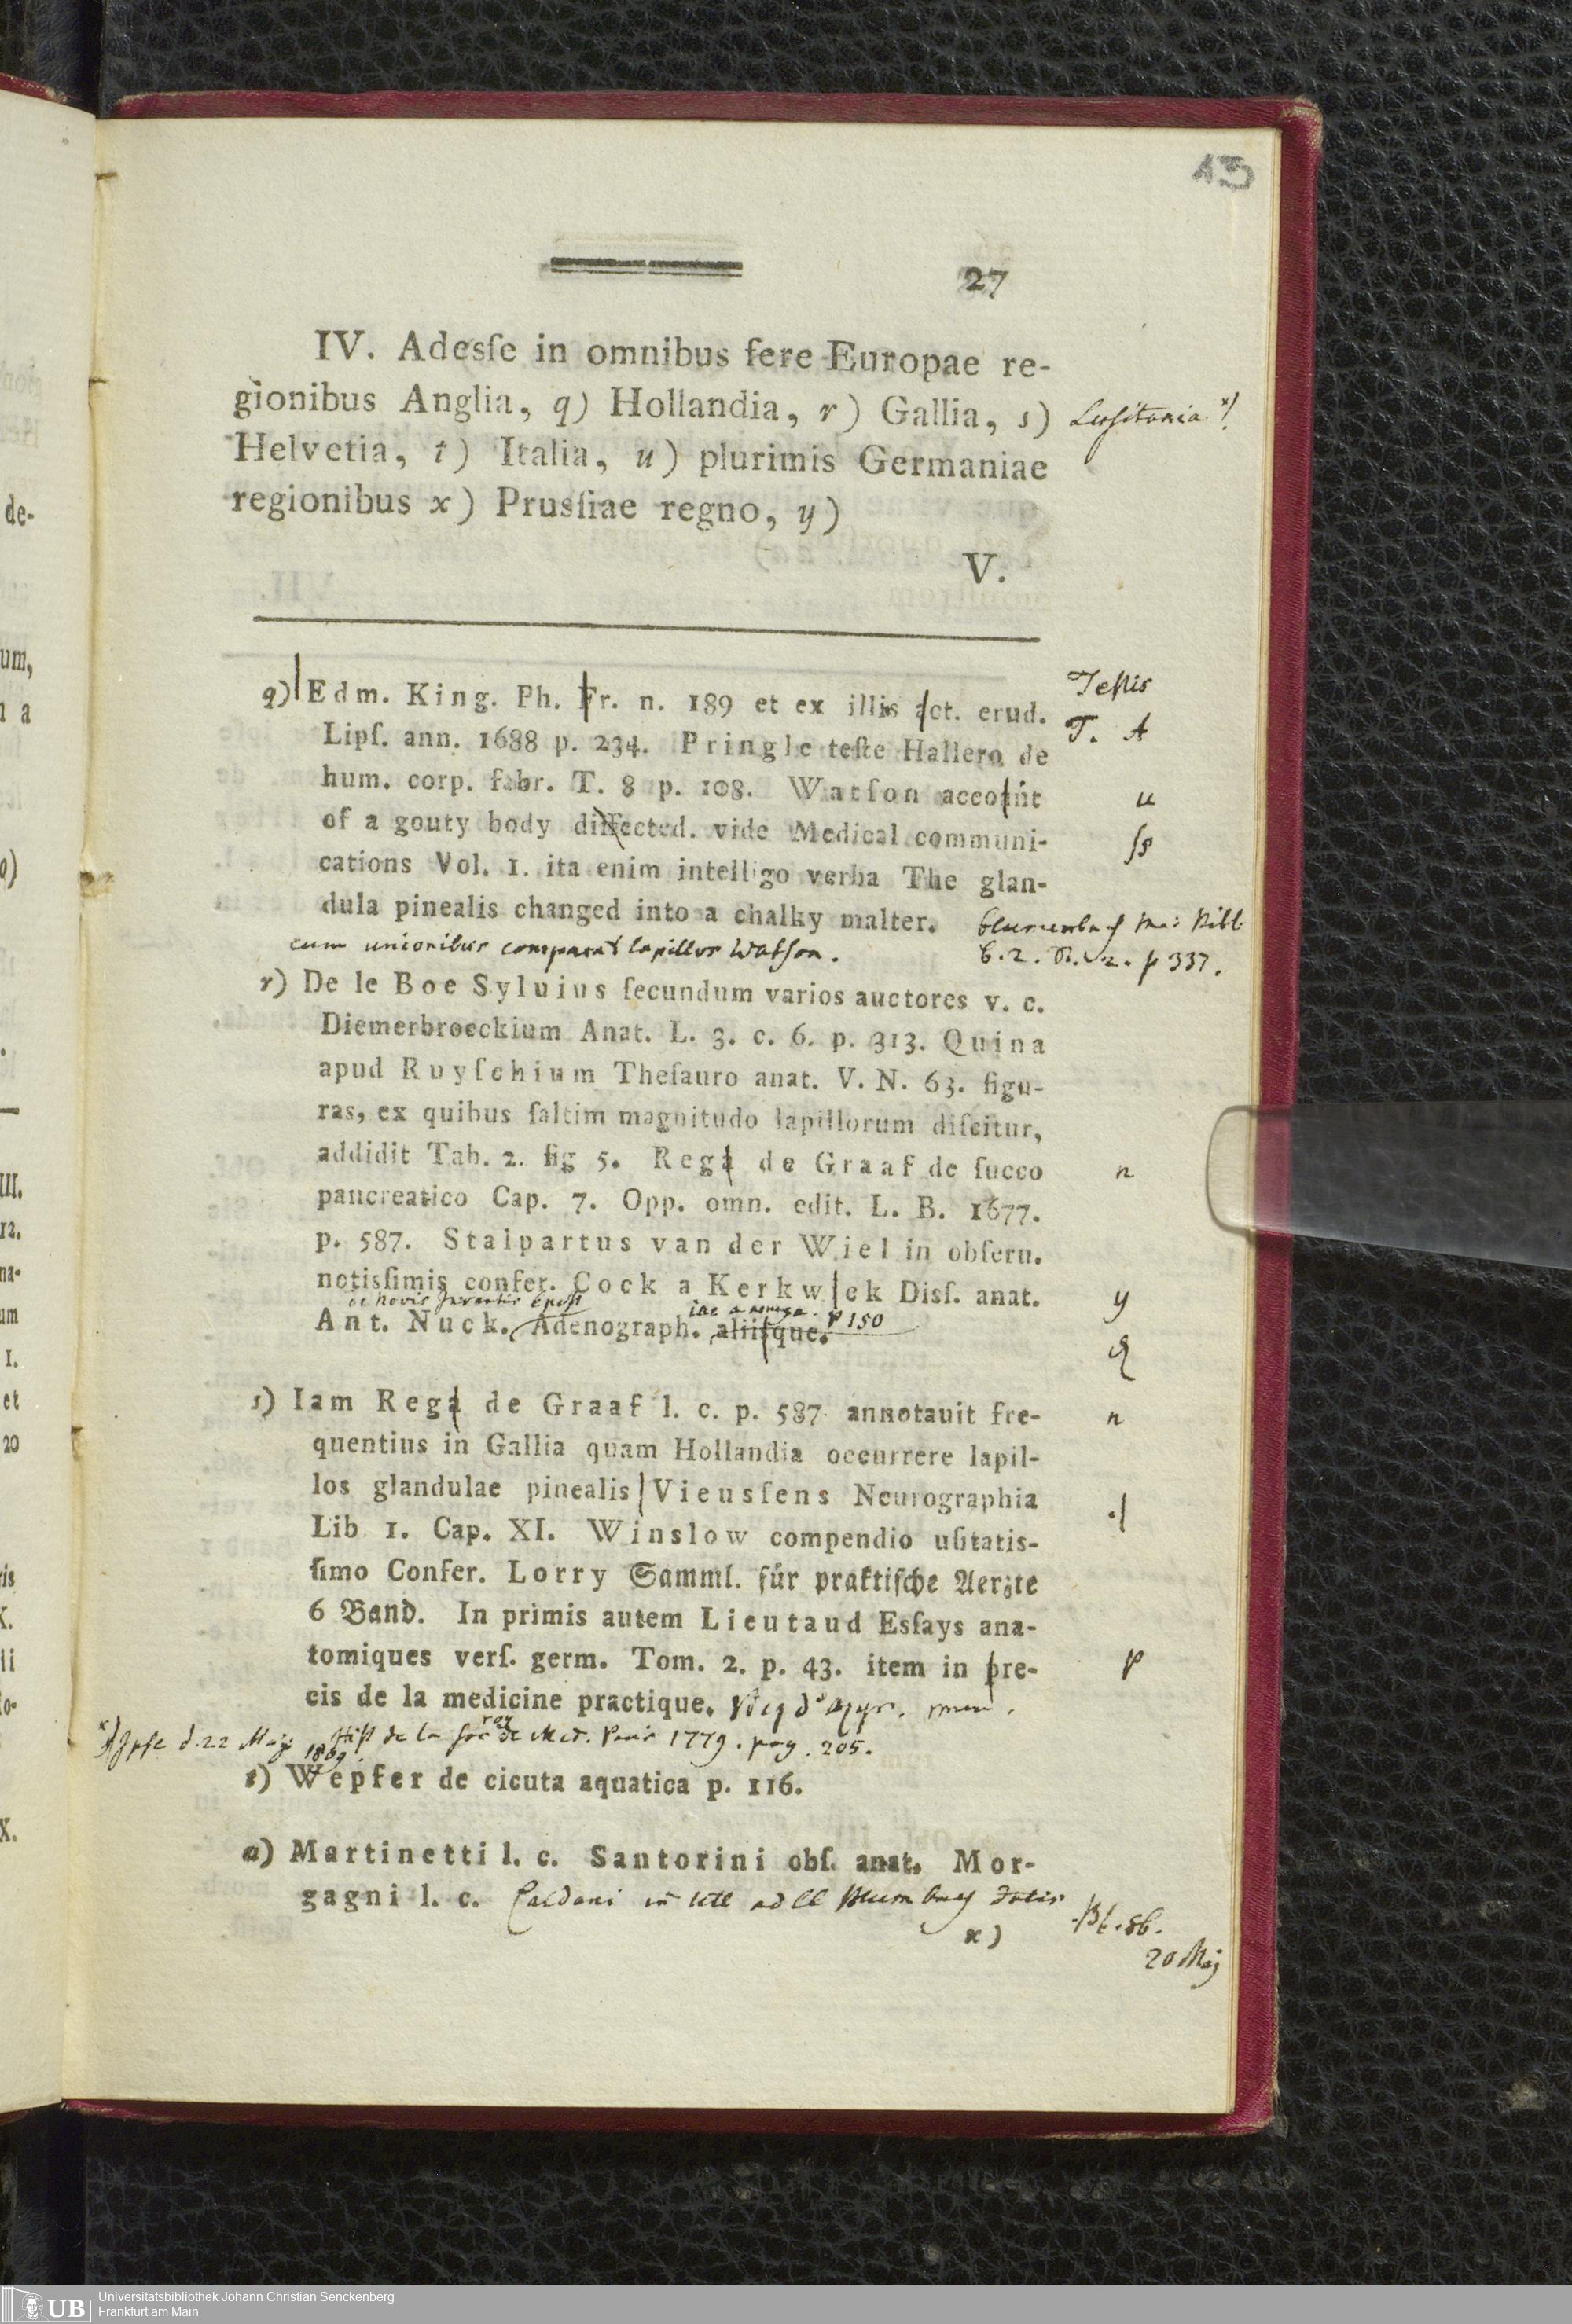 13
27
IV. Adesſe in omnibus fere Europae re-
gionibus Anglia, q) Hollandia, r) Gallia, s) Lusitania x)
Helvetia, t) Italia, u) plurimis Germaniae
regionibus x) Prusſiae regno, y)
V.
q) Edm. King. Ph. Fr. n. 189 et ex illis act. erud. Testis
Lipſ. ann. 1688 p. 234. Pringle teſte Hallero de T. A
hum. corp. fabr. T. 8 p. 108. Watſon accoant u
of a gouty body diſſected. vide Medical communi- ſs
cations Vol. 1. ita enim intelligo verba The glan-
dula pinealis changed into a chalky malter. Blumenbach Bibl
cum unionibus comparat lapillos Watson. B. 2. 2. p 337.
r) De le Boe Sylvius ſecundum varios auctores v. c.
Diemerbroeckium Anat. L. 3. c. 6. p. 313. Quina
apud Ruyſchium Theſauro anat. V. N. 63. figu-
ras, ex quibus ſaltim magnitudo lapillorum diſcitur,
addidit Tab. 2. fig 5. Rega de Graaf de ſucco n
pancreatico Cap. 7. Opp. omn. edit. L. B. 1677.
p. 587. Stalpartus van der Wiel in obſeru.
notisſimis confer. Cock a Kerkwiek Disſ. anat. y
de novis inventis
p 150
Ant. Nuck. Adenograph. aliiſque.
s) Iam Rega de Graaf l. c. p. 587 annotauit fre- n
quentius in Gallia quam Hollandia occurrere lapil-
los glandulae pinealis Vieusſens Neurographia .|
Lib 1. Cap. XI. Winslow compendio uſitatis-
ſimo Confer. Lorry Samml. für praktiſche Aerzte
6 Band. In primis autem Lieutaud Esſays ana-
tomiques verſ. germ. Tom. 2. p. 43. item in pre- p
cis de la medicine practique. Vicq d'Azyr.
x) Ipse d. 22 Maji 1809. Hist de la soc roy de Med. Paris 1779. pag. 205.
t) Wepfer de cicuta aquatica p. 116.
u) Martinetti l. c. Santorini obſ. anat. Mor-
gagni l. c. Caldani in ad Blumenbach
x)
20 Maj
Universitätsbibliothek Johann Christian Senckenberg
Frankfurt am Main
UB